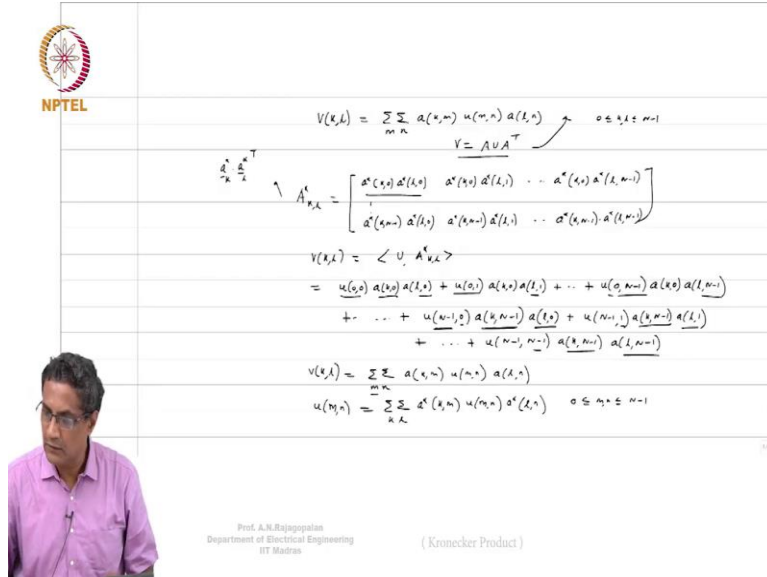 NPTEL
v(k,l) = ∑_m ∑_n a(k,m) u(m,n) a(l,n) 0 ≤ k,l ≤ N-1
V = A U A^T
a*_k · a*_l^T
A*_{k,l} = [ a*(k,0) a*(l,0) a*(k,0) a*(l,1) .. a*(k,0) a*(l,N-1)
a*(k,N-1) a*(l,0) a*(k,N-1) a*(l,1) .. a*(k,N-1) · a*(l,N-1) ]
v(k,l) = < U, A*_{k,l} >
= u(0,0) a(k,0) a(l,0) + u(0,1) a(k,0) a(l,1) + .. + u(0,N-1) a(k,0) a(l,N-1)
+ . ... + u(N-1,0) a(k,N-1) a(l,0) + u(N-1,1) a(k,N-1) a(l,1)
+ ... + u(N-1,N-1) a(k,N-1) a(l,N-1)
v(k,l) = ∑_m ∑_n a(k,m) u(m,n) a(l,n)
u(m,n) = ∑_k ∑_l a*(k,m) u(m,n) a*(l,n) 0 ≤ m,n ≤ N-1
Prof. A.N.Rajagopalan
Department of Electrical Engineering
IIT Madras
( Kronecker Product )